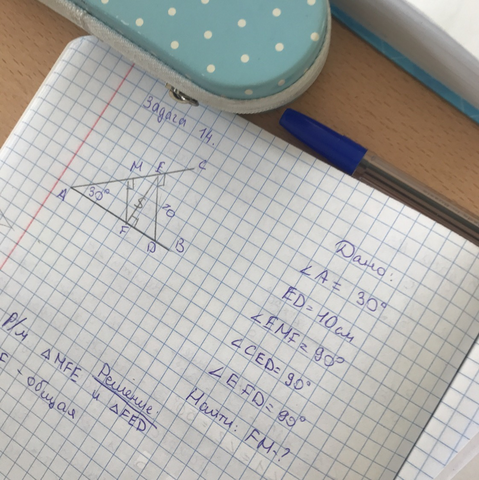 Задача 14.
M E C
A 30° 10
F D B
Дано:
∠A = 30°
ED = 10 см
∠EMF = 90°
∠CED = 90°
∠EFD = 90°
Найти: FM-?
Решение:
Р/м △MFE и △FED
- общая